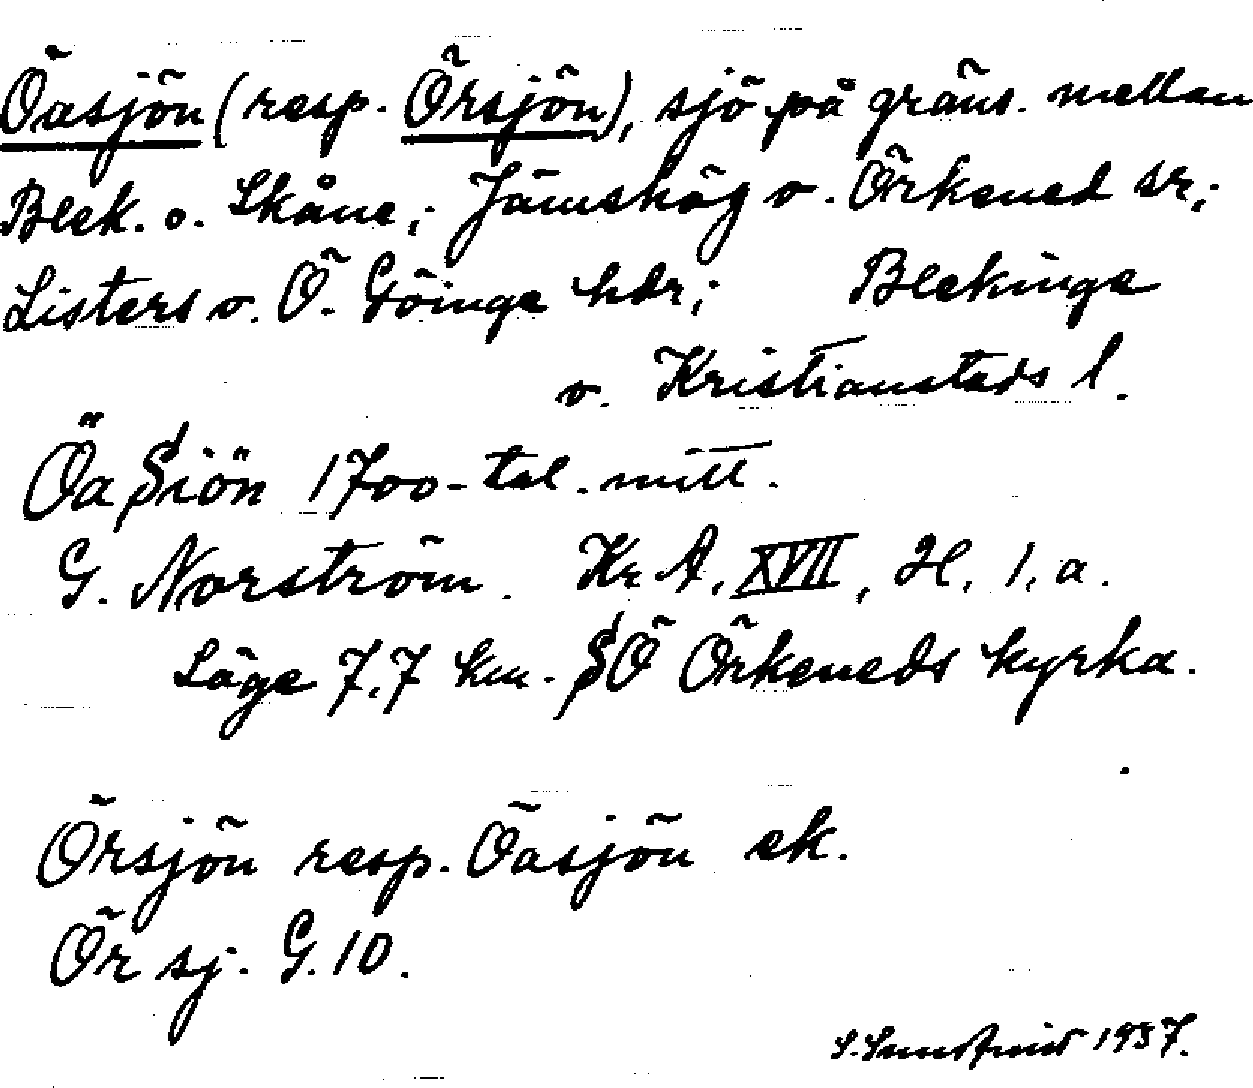 Öasjön (resp. Örsjön), sjö på gräns. mellan
Blek. o. Skåne; Jämshög o. Örkened sr;
Listers o. Ö. Göinge hdr; Blekinge
o. Kristianstads l.
Öa Siön 1700-tal. mitt.
G. Norström. Kr A, XVII, H, 1, a.
Läge 7,7 km. SÖ Örkeneds kyrka.
Örsjön resp. Öasjön ek.
Ör sj. G. 10.
1937.